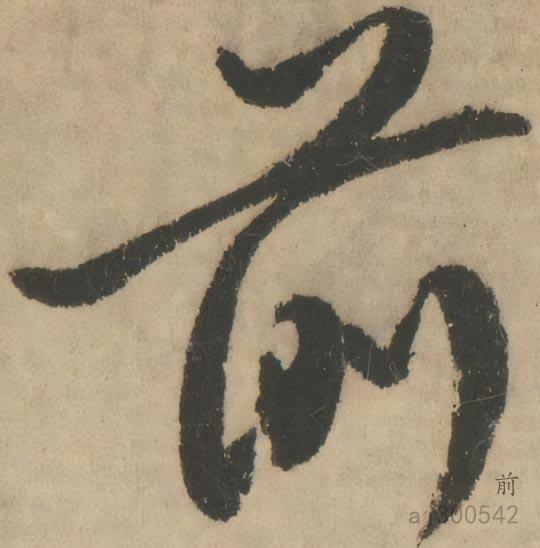 前
前
a1300542